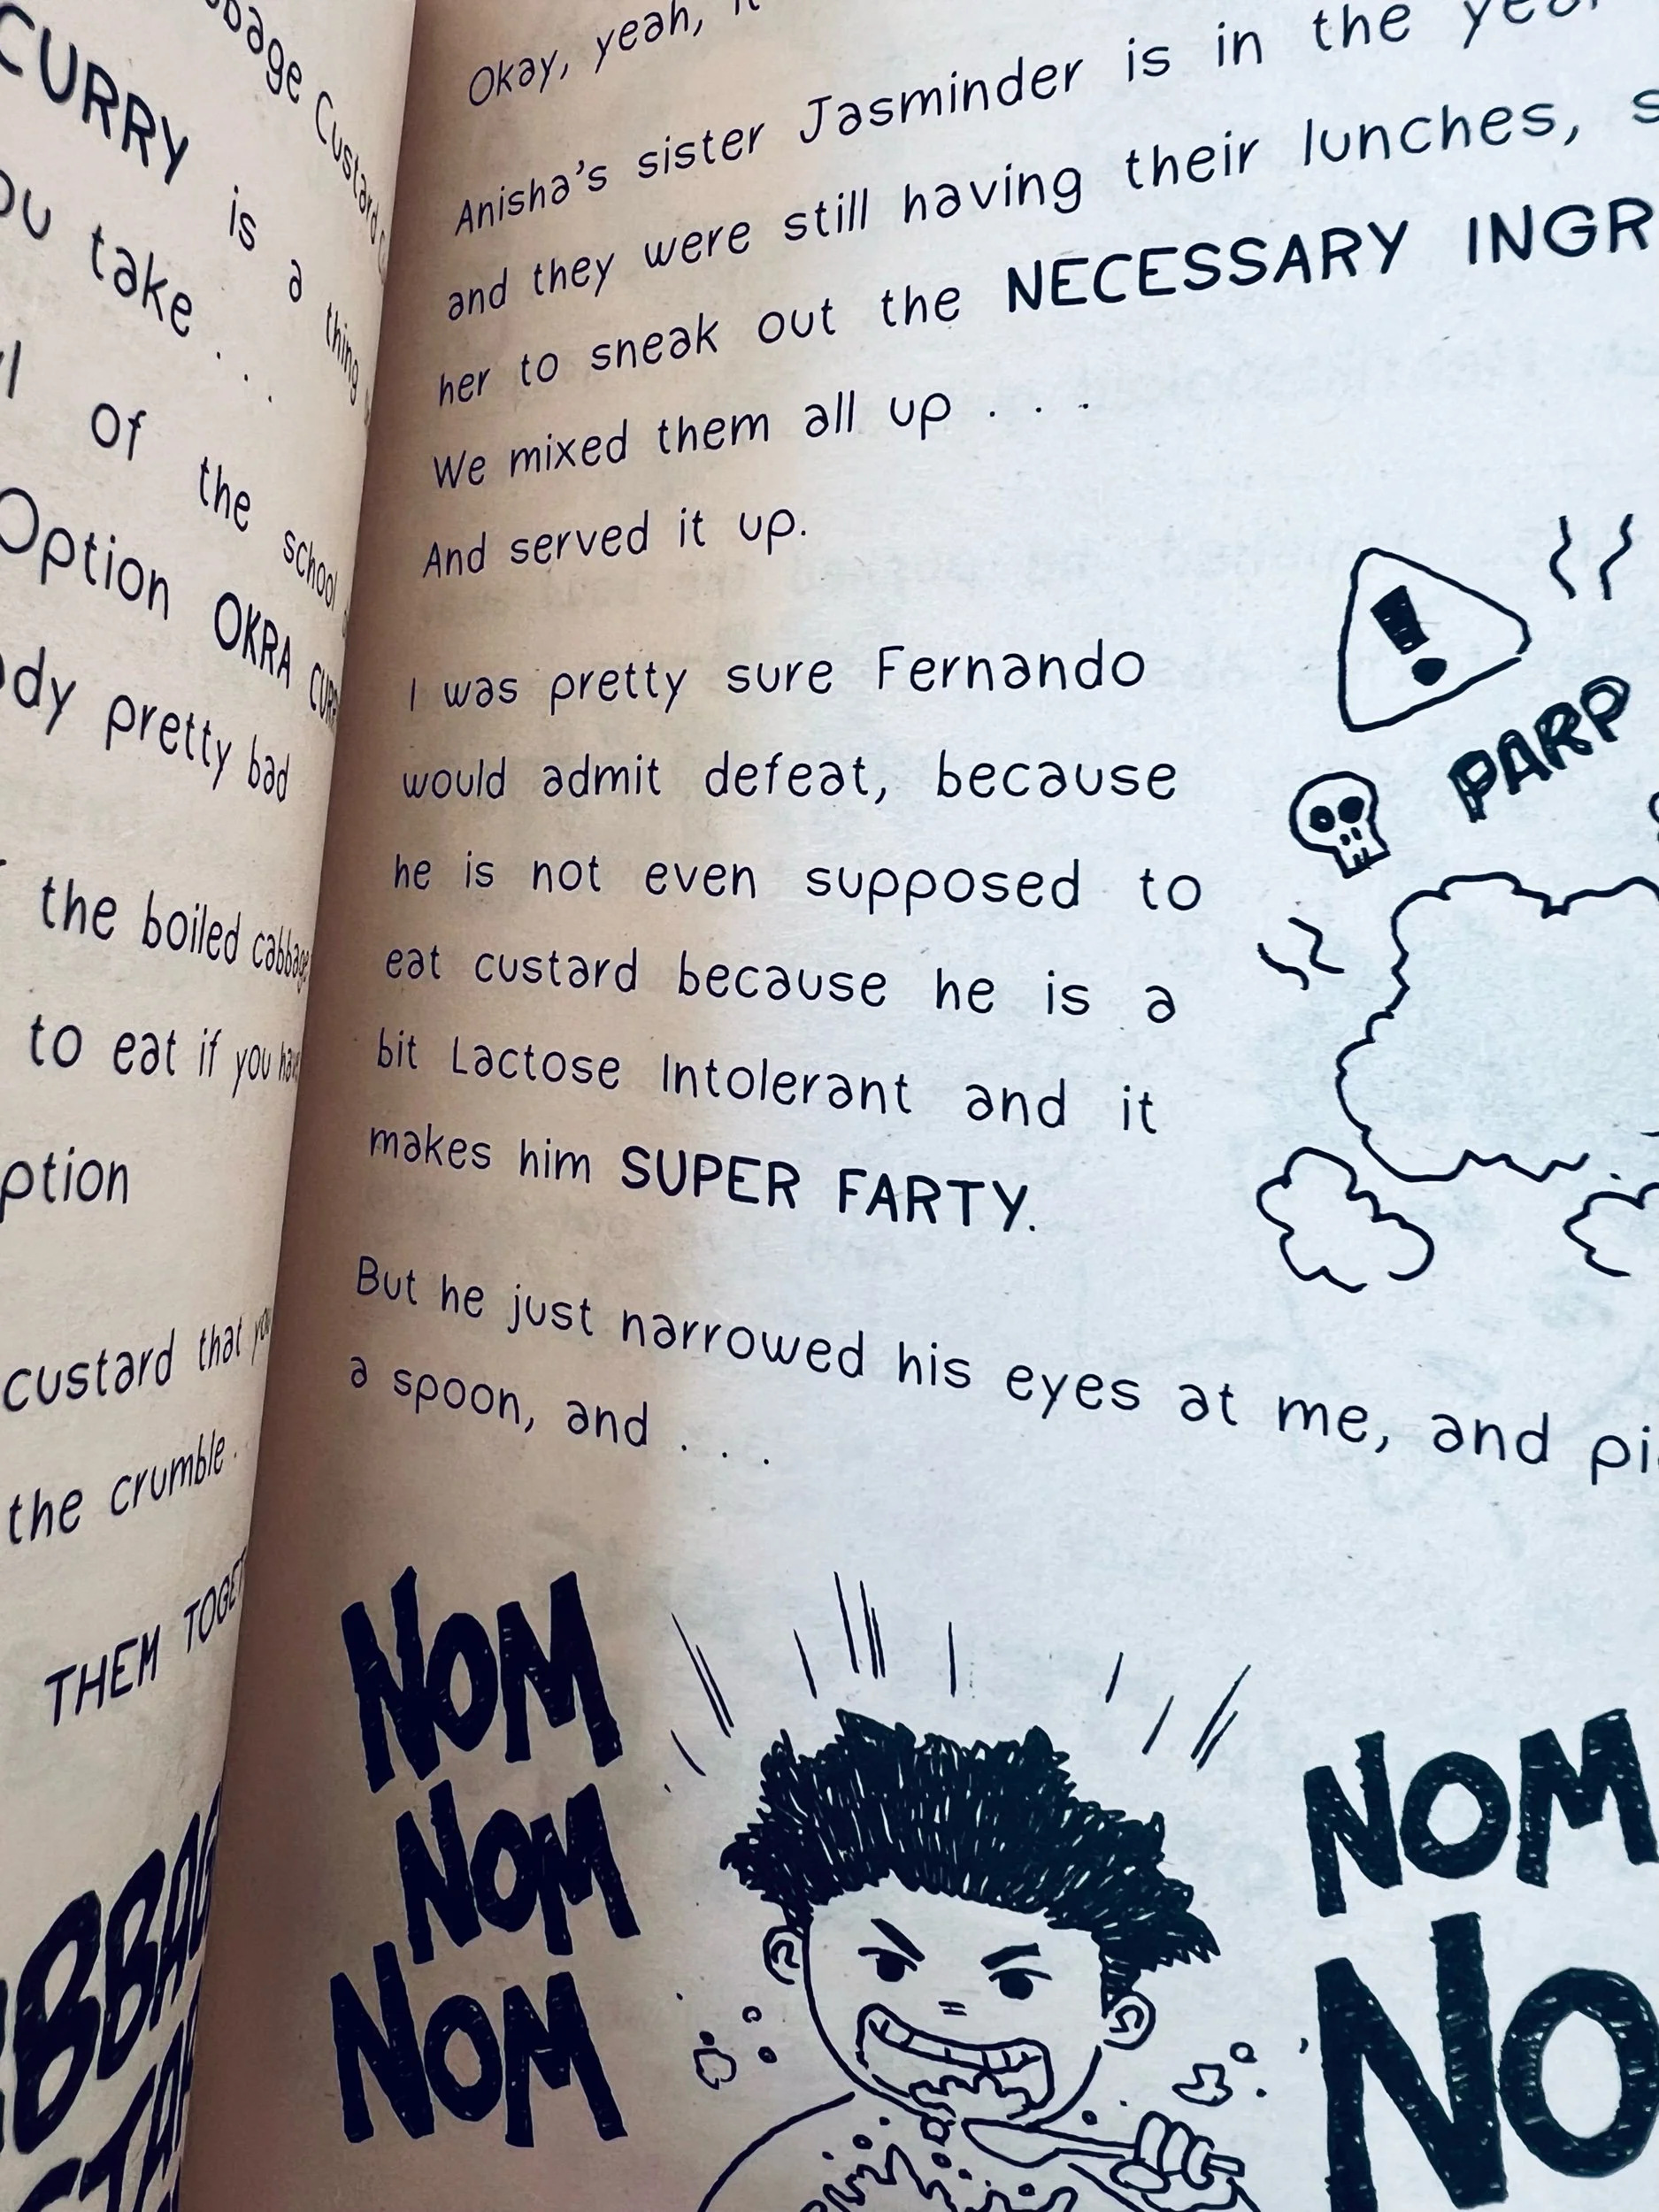 Custard
CURRY is a thing
take . . .
of the school
Option OKRA
pretty bad
the boiled cabbage
to eat if you have
custard that you
the crumble . .
THEM
Okay, yeah,
Anisha's sister Jasminder is in the
and they were still having their lunches,
her to sneak out the NECESSARY
We mixed them all up . . .
And served it up.
I was pretty sure Fernando
would admit defeat, because
he is not even supposed to
eat custard because he is a
bit Lactose Intolerant and it
makes him SUPER FARTY.
!
PARP
But he just narrowed his eyes at me, and
a spoon, and . . .
NOM
NOM
NOM
NOM